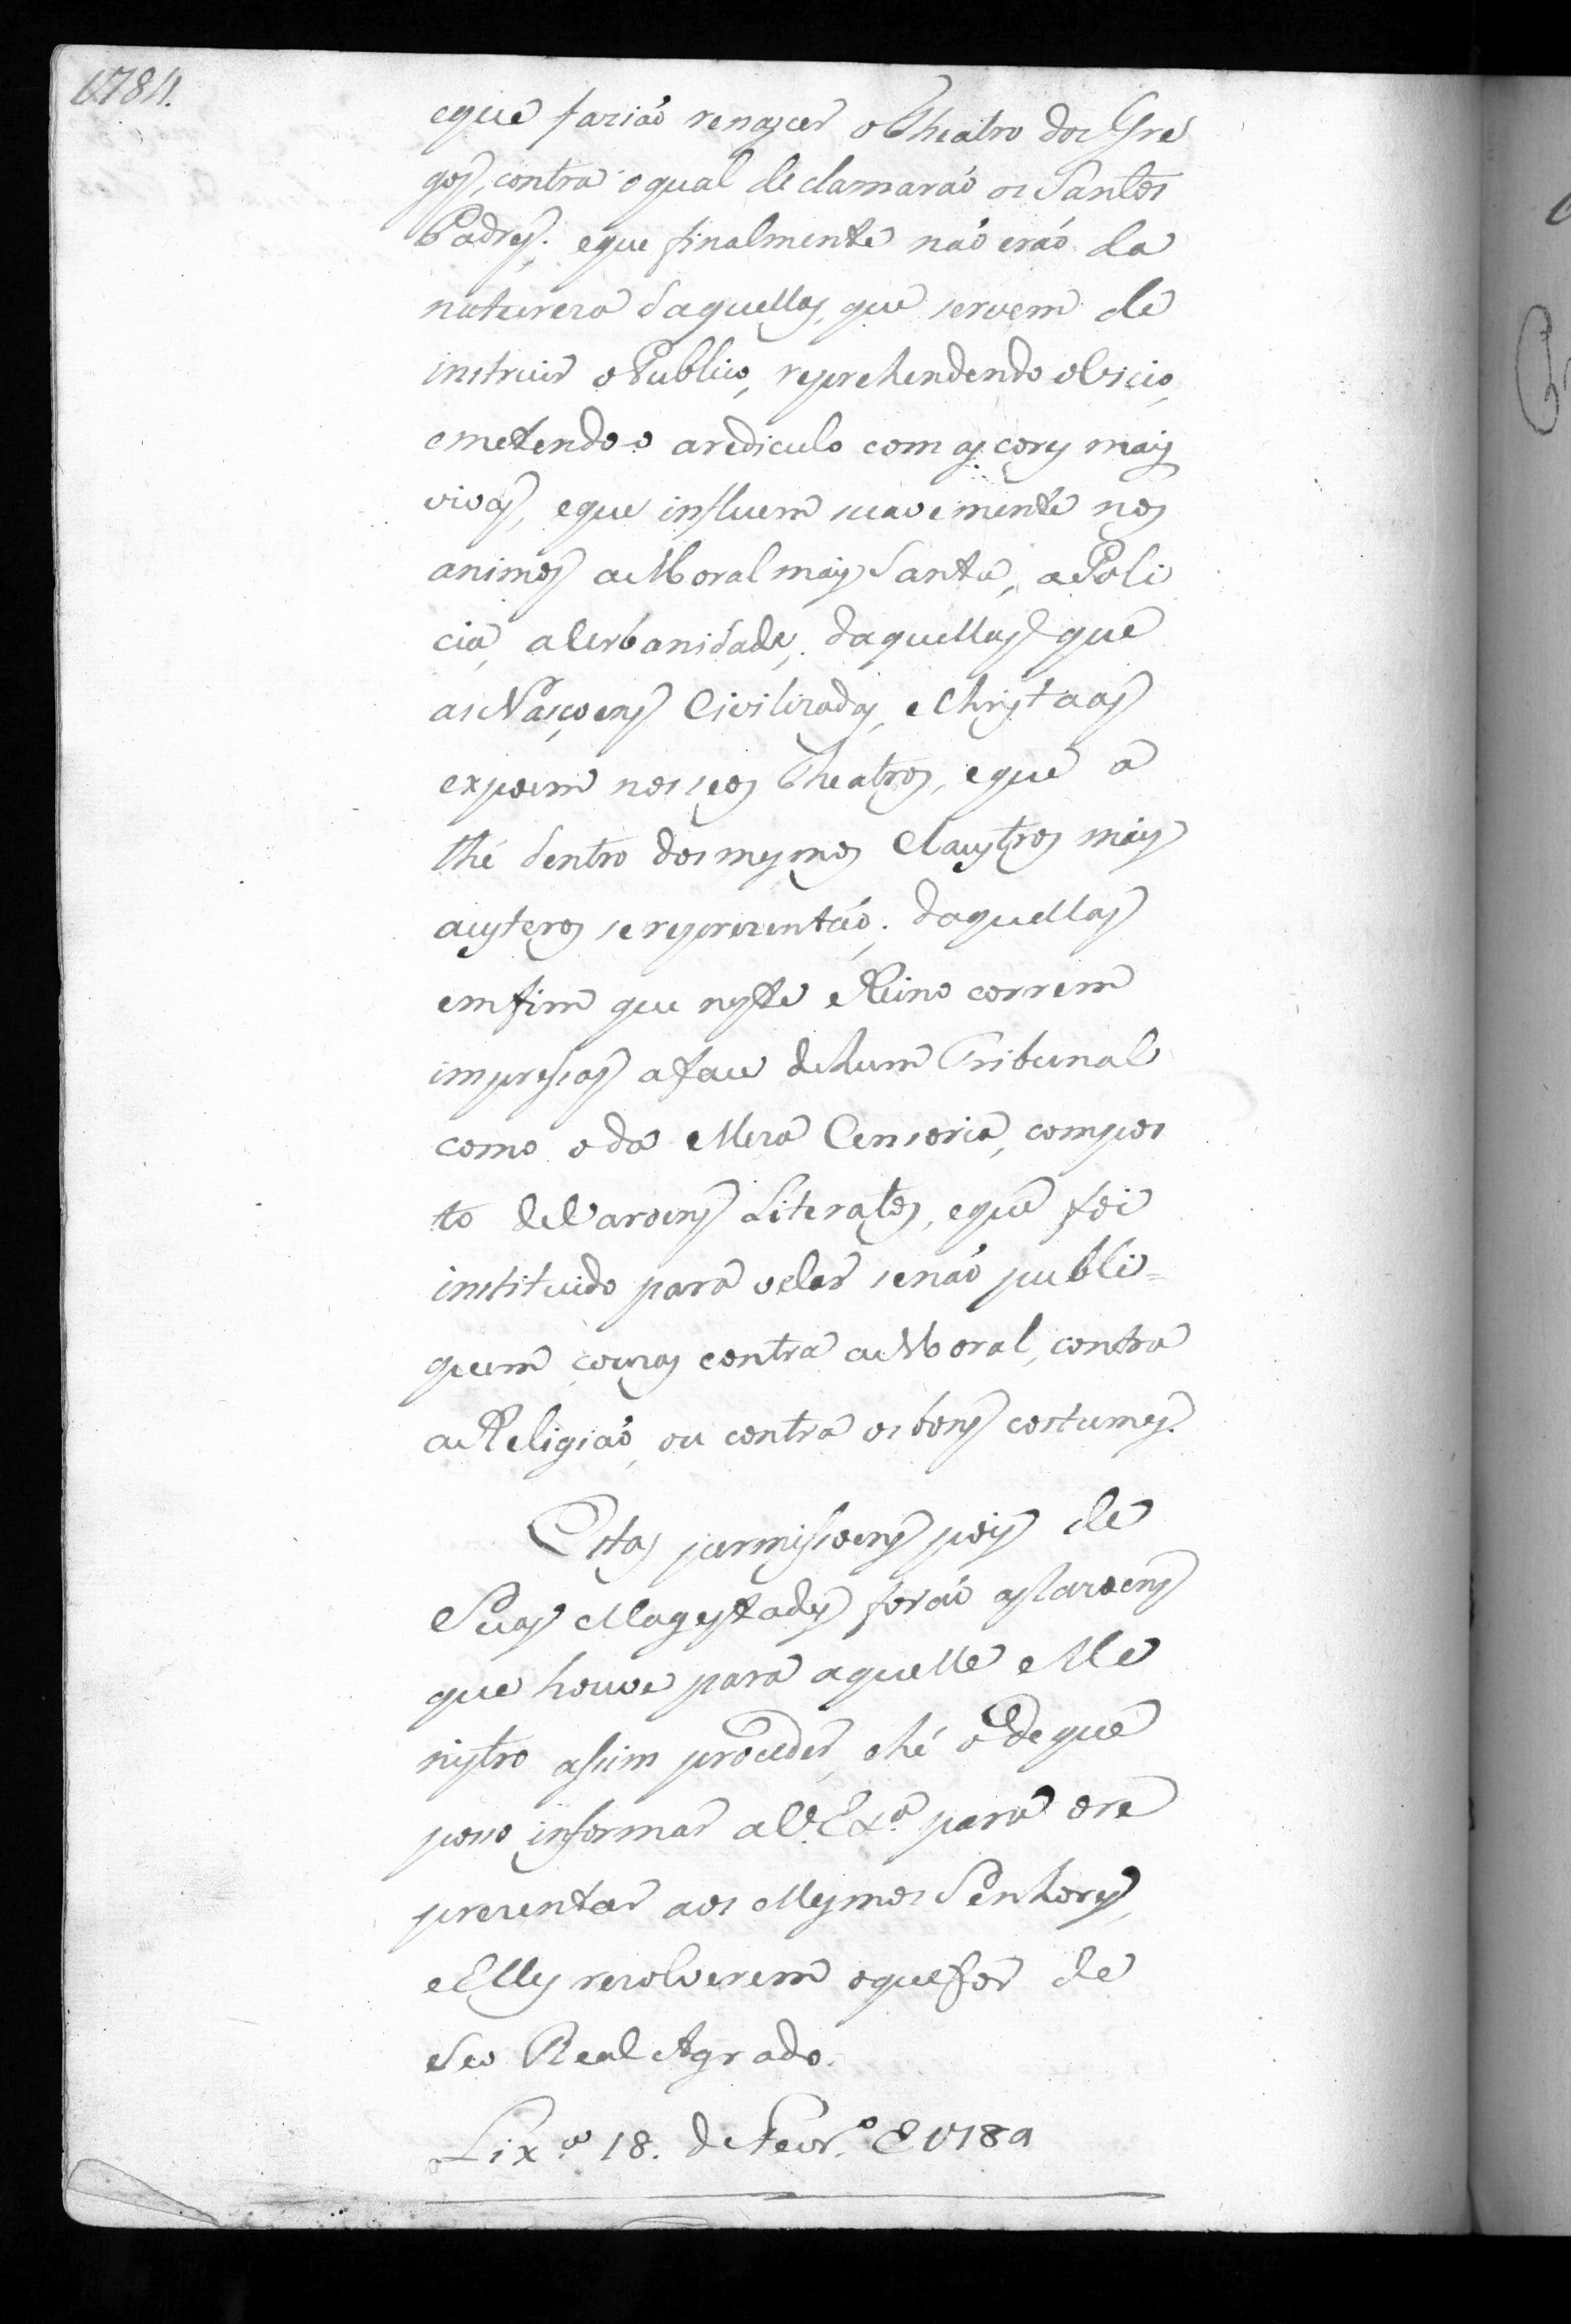 1784.
eque farião renascer o Theatro dos Gre
gos, contra o qual declamarão os Santos
Padres; eque finalmente não erão da
natureza daquellas, que servem de
instruir o Publico, reprehendendo o Vicio,
emetendo-o arediculo com as cores mais
vivas, eque influem suavemente nos
animos a Moral mais Santa, a Poli
cia, a Urbanidade; daquellas que
as Nasçoens Civilizadas, e Christaas
expoem nos seos Theatros, eque a
thé dentro dos mesmos Claustros mais
austeros se reprezentão; daquellas
emfim que neste Reino correm
impressas a face dehum Tribunal
como o da Meza Censoria, compos
to de Varoens Literatos, eque foi
instituido para velar senão publi=
quem couzas contra a Moral, contra
a Religião, ou contra os bons costumes.
Estas permissoens pois de
Suas Magestades forão as Razoens
que houve para aquelle Me
nistro assim proceder, ehé o de que
posso informar a V. Exª. para o re
prezentar aos Mesmos Senhores,
e Elles rezolverem oque for de
Seo Real Agrado.
Lixª. 18. de Fevr.º E 1784